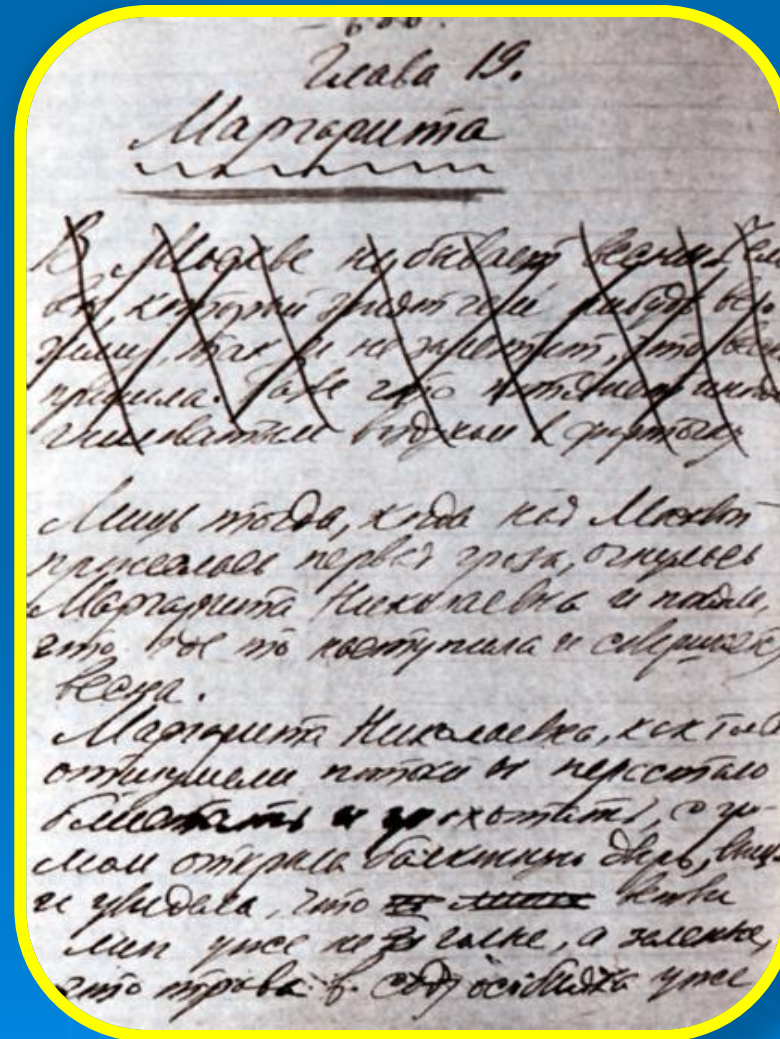 Глава 19.
Маргарита
В Москве не бывает весны. Чел
век, который сидят
зиму, так и не заметит, что весн
пришла. Даже его иног
гниловатым воздухом в форточку
Лишь тогда, когда над Москвой
пронеслась первая гроза, очнулась
Маргарита Николаевна и поняла,
что где то наступила и совершается
весна.
Маргарита Николаевна, как толь
отшумели потоки и перестало
блистать и грохотать, с гро
мом открыла балконную дверь,
и увидела, что ветви
лип уже не голые, а зеленые,
что трава в саду особняка уже